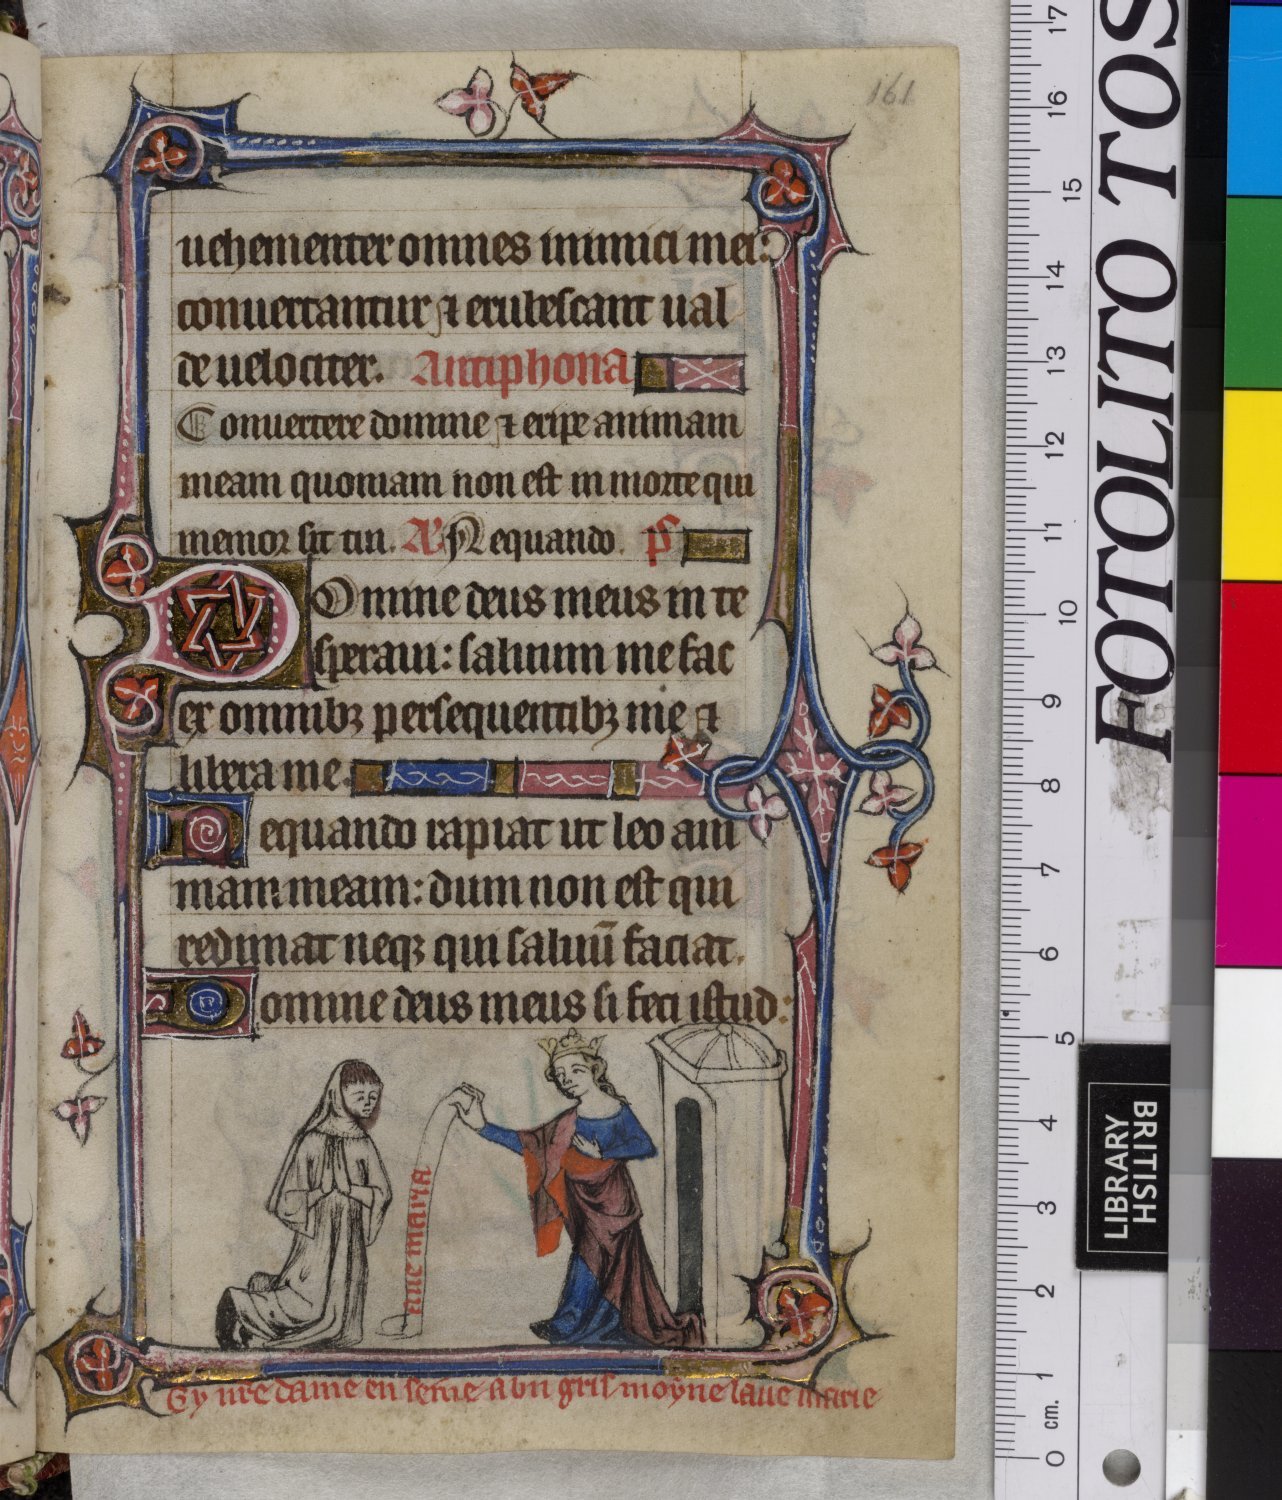 161
uehementer omnes inimici mei:
conuertantur ⁊ erubescant ual
de uelociter. Antiphona
Conuertere domine ⁊ eripe animam
meam quoniam non est in morte qui
memor sit tui. A Nequando. ps
Domine deus meus in te
speraui: saluum me fac
ex omnibꝫ persequentibꝫ me ⁊
libera me.
Nequando rapiat ut leo ani
mam meam: dum non est qui
redimat neqꝫ qui saluū faciat.
Domine deus meus si feci istud:
aue maria
Cy nre dame enseine a vn gris moyne laue marie
FOTOLITO LITO TOS
BRITISH
LIBRARY
0 cm. 1 2 3 4 5 6 7 8 9 10 11 12 13 14 15 16 17